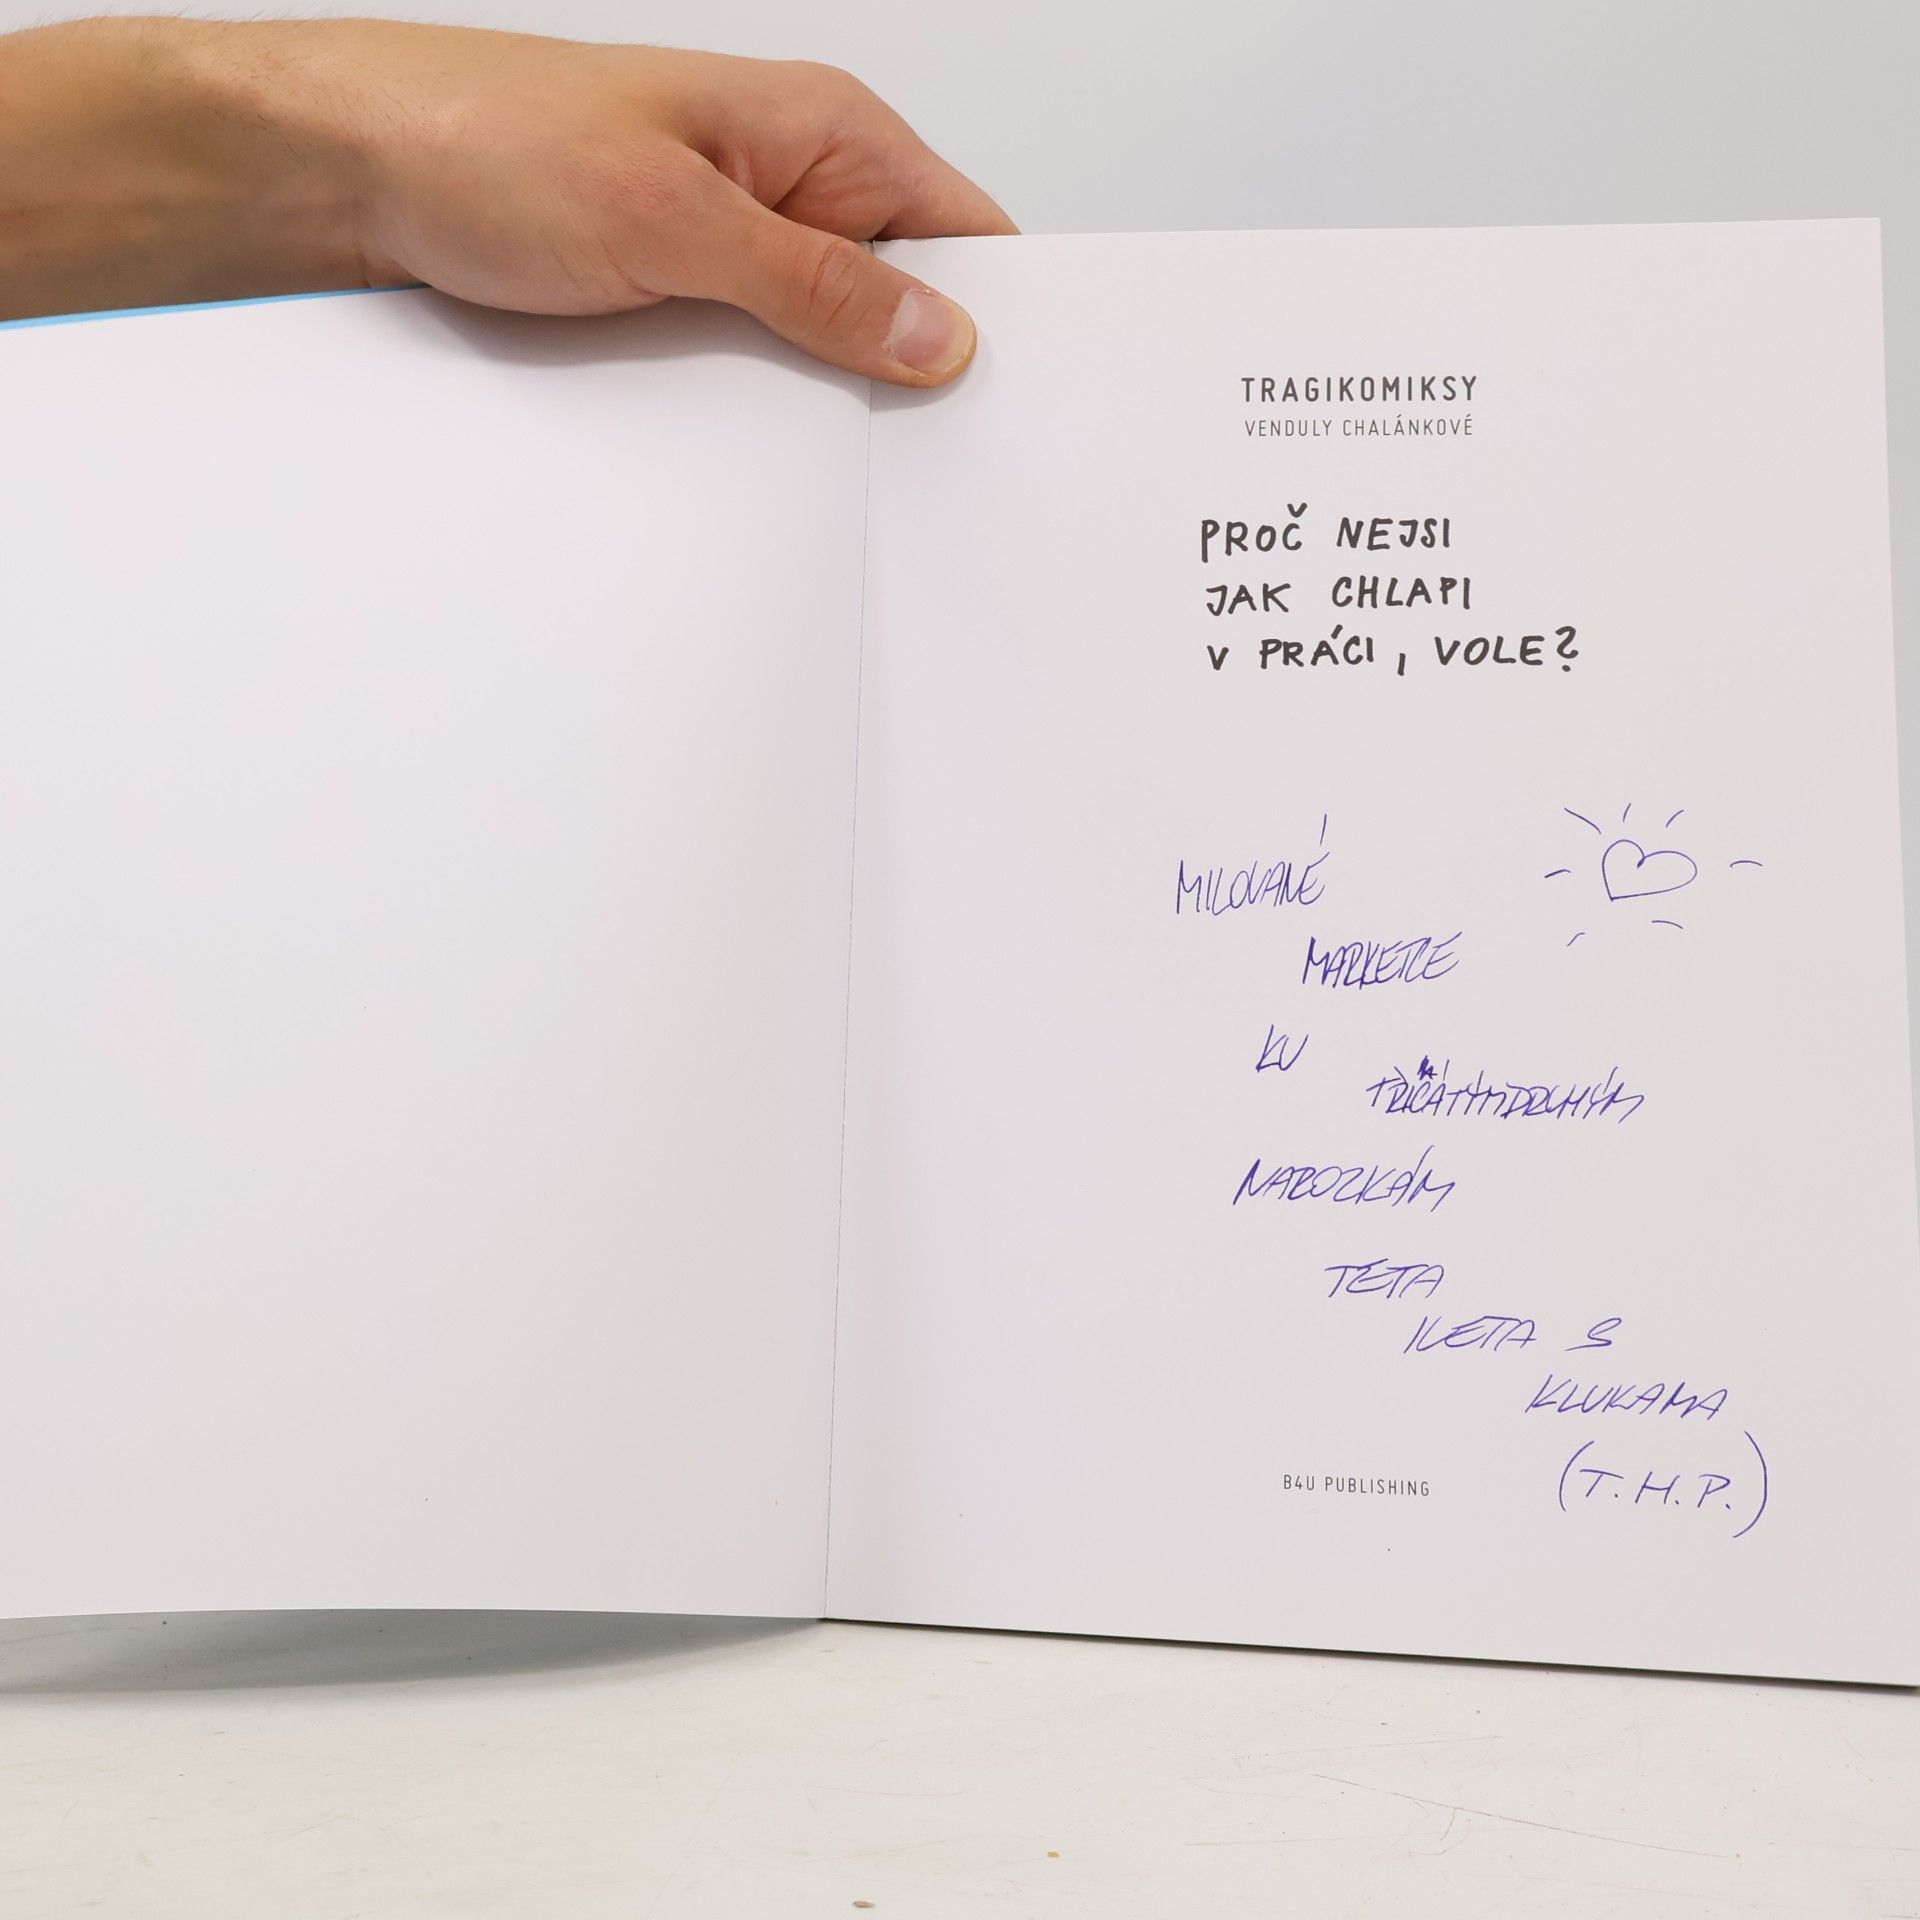 TRAGIKOMIKSY
VENDULY CHALÁNKOVÉ
PROČ NEJSI
JAK CHLAPI
V PRÁCI, VOLE?
MILOVANÉ
MARKETCE
KU
TŘIČÁTÝMDRUHÝM
NAROZKÁM
TETA
IVETA S
KLUKAMA
(T.H.P.)
B4U PUBLISHING